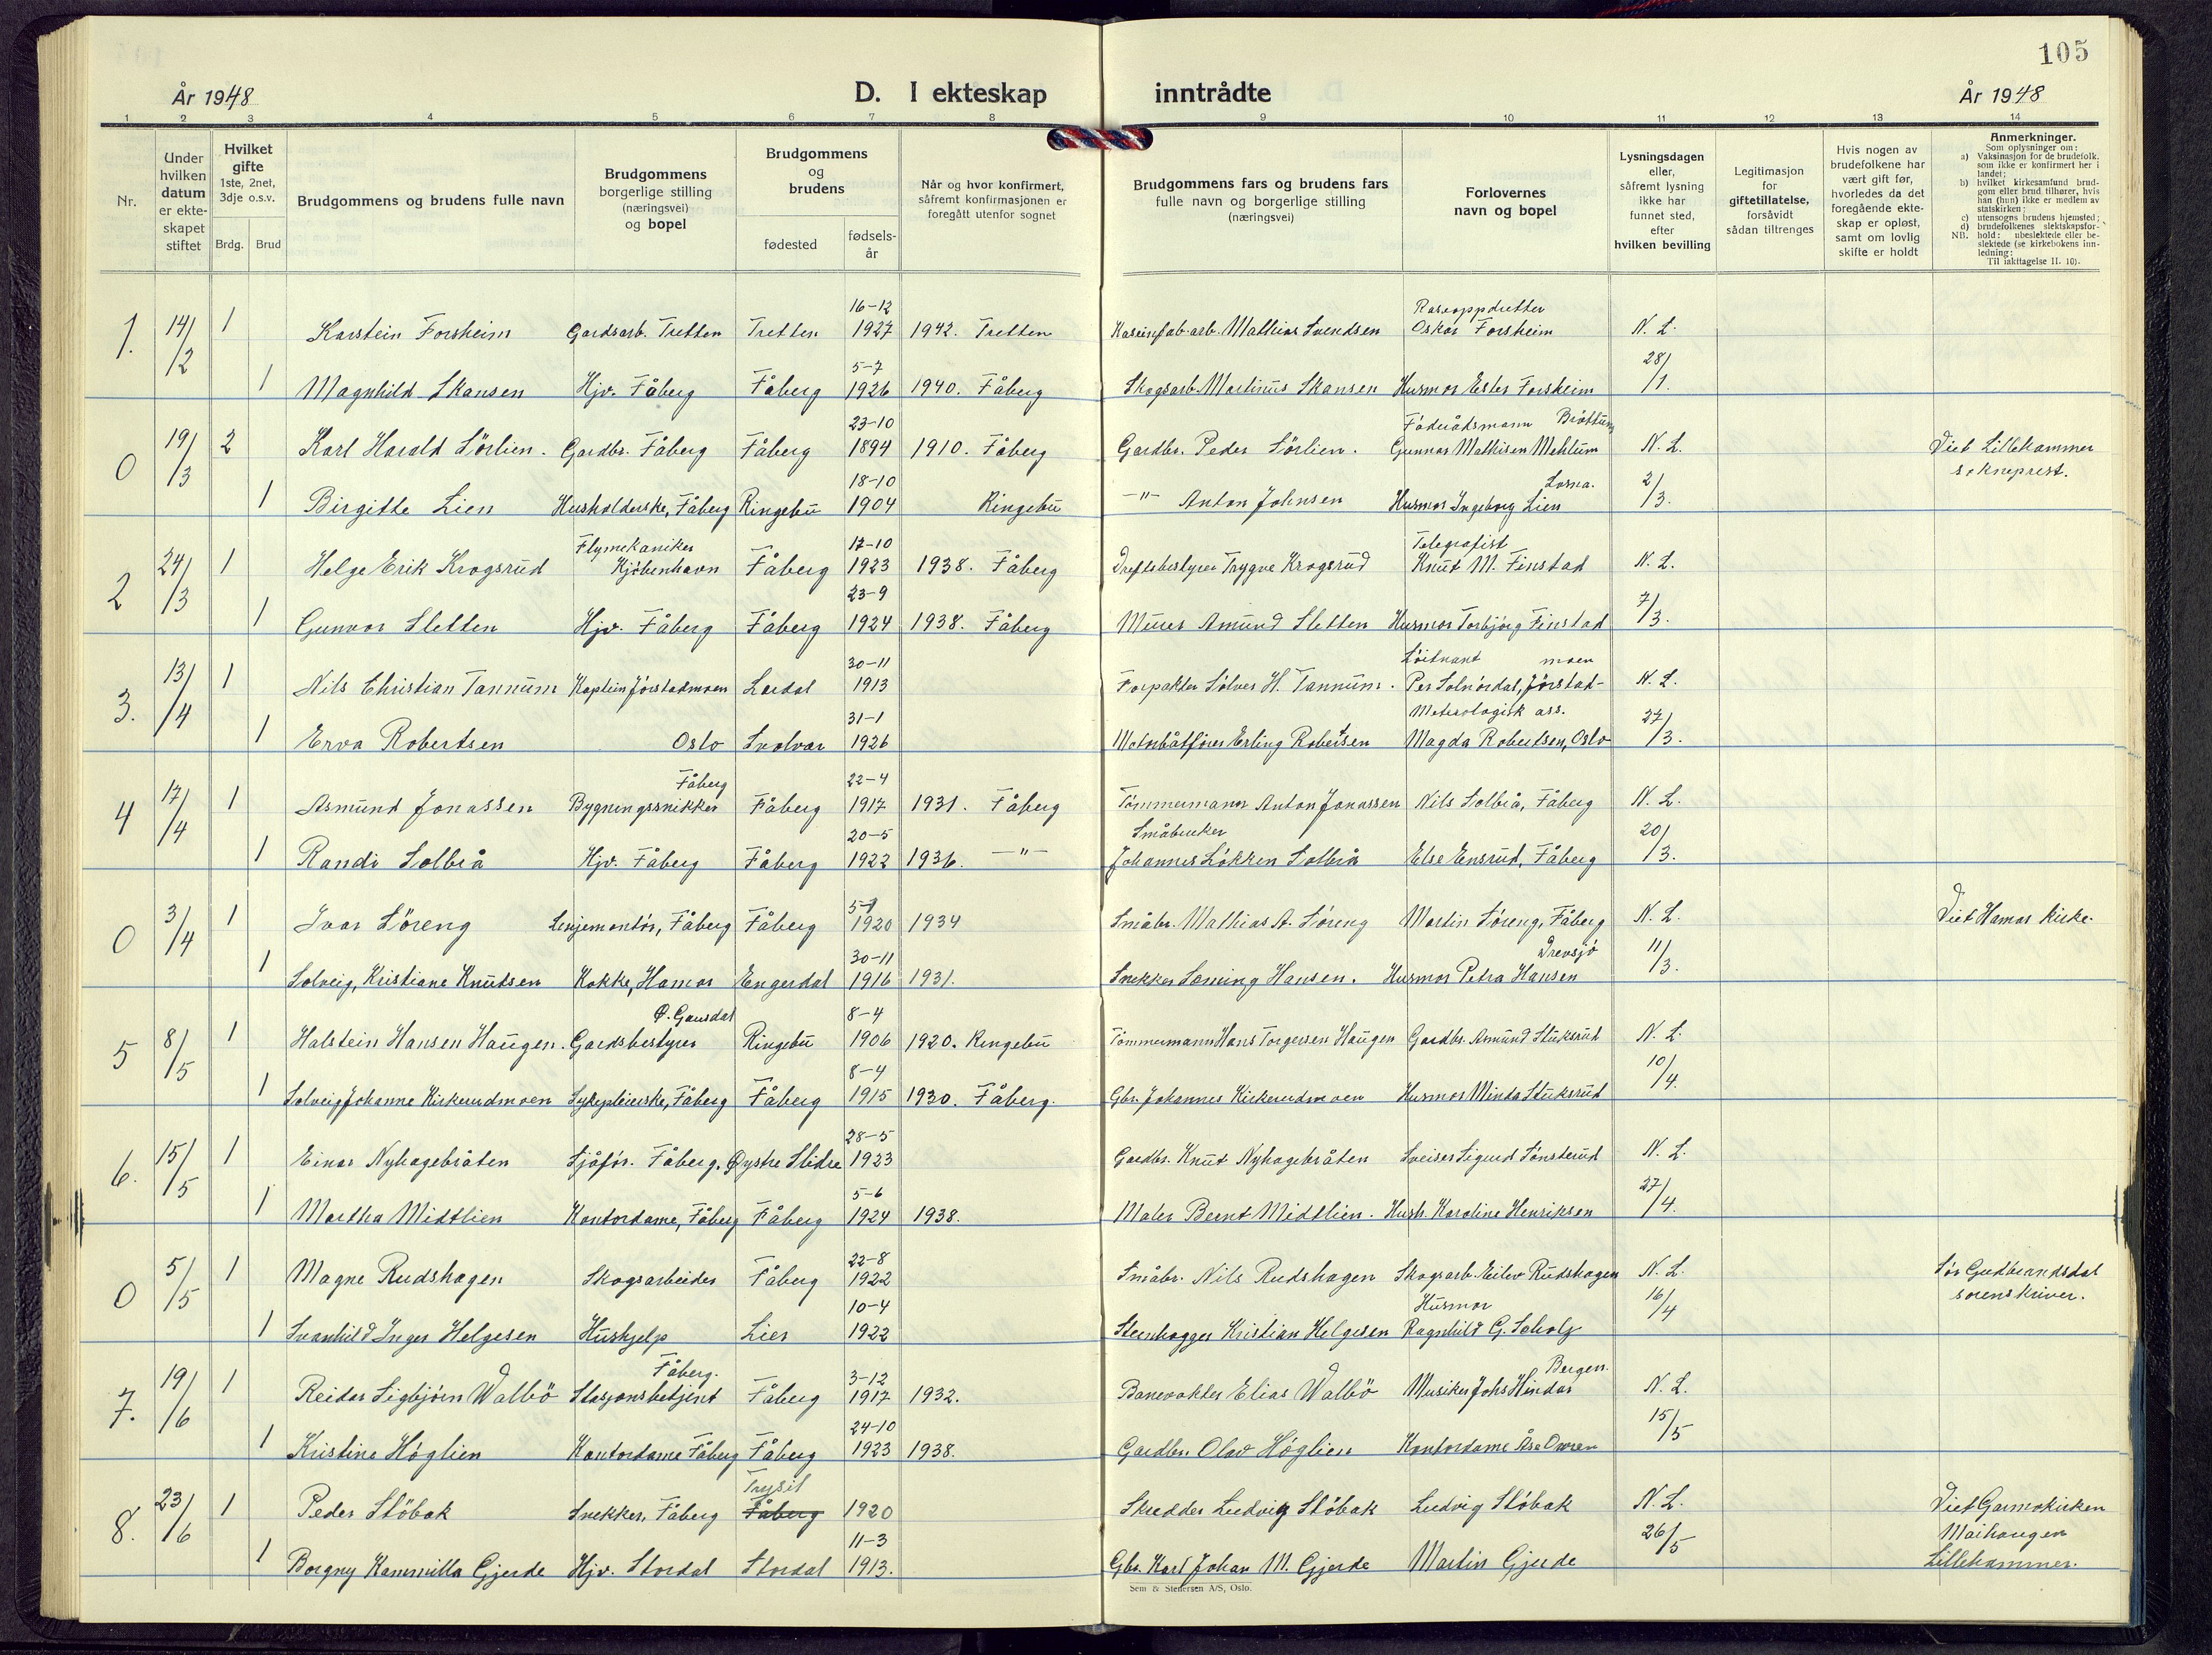 105
År 1948
D. I ekteskap inntrådte
År 1948
1 2 3 4 5 6 7 8 9 10 11 12 13 14
Nr.
Under hvilken datum er ekteskapet stiftet
Hvilket gifte 1ste, 2net, 3dje o.s.v.
Brdg. Brud
Brudgommens og brudens fulle navn
Brudgommens borgerlige stilling (næringsvei) og bopel
Brudgommens og brudens
fødested
fødselsår
Når og hvor konfirmert, såfremt konfirmasjonen er foregått utenfor sognet
Brudgommens fars og brudens fars fulle navn og borgerlige stilling (næringsvei)
Forlovernes navn og bopel
Lysningsdagen eller, såfremt lysning ikke har funnet sted, efter hvilken bevilling
Legitimasjon for giftetillatelse, forsåvidt sådan tiltrenges
Hvis nogen av brudefolkene har vært gift før, hvorledes da det foregående ekteskap er opløst, samt om lovlig skifte er holdt
Anmerkninger.
Som oplysninger om:
a) Vaksinasjon for de brudefolk, som ikke er konfirmert her i landet;
b) hvilket kirkesamfund brudgom eller brud tilhører, hvis han (hun) ikke er medlem av statskirken;
c) utensogns brudens hjemsted;
d) brudefolkenes slektskapsforhold: ubeslektede eller beslektede (se kirkebokens innledning:
NB. Til iakttagelse II. 10).
1. 14/2 1 Karstein Forsheim Gardsarb. Tretten Tretten 16-12 1927 1942. Tretten Kaseinfab.arb. Mathias Svendsen Raseoppdretter Oskar Forsheim N. L.
1 Magnhild Skansen Hjv. Fåberg Fåberg 5-7 1926 1940. Fåberg Skogsarb. Martinus Skansen Husmor Ester Forsheim 28/1.
0 19/3 2 Karl Harald Sörlien. Gardbr. Fåberg Fåberg 23-10 1894 1910. Fåberg Gardbr. Peder Sörlien. Föderådsmann Bröttum Gunnar Mathisen Mehlum N. L. Viet Lillehammer sokneprest.
1 Birgitte Lien Husholderske, Fåberg Ringebu 18-10 1904 Ringebu -"- Anton Johnsen Losna. Husmor Ingeborg Lien 2/3.
2 24/3 1 Helge Erik Krogsrud Flymekaniker Kjöbenhavn Fåberg 17-10 1923 1938. Fåberg Driftsbestyrer Trygve Krogsrud Telegrafist Knut M. Finstad N. L.
1 Gunvor Sletten Hjv. Fåberg Fåberg 23-9 1924 1938. Fåberg Murer Amund Sletten Husmor Torbjörg Finstad 7/3.
3. 13/4 1 Nils Christian Tannum Kaptein Jörstadmoen Lardal 30-11 1913 Forpakter Sölver H. Tannum. Löitnant Per Solnördal, Jörstadmoen N. L.
1 Erva Robertsen Oslo Svolvær 31-1 1926 Motorbåtförer Erling Robertsen Meterologisk ass. Magda Robertsen, Oslo 27/3.
4 17/4 1 Asmund Jonassen Fåberg Bygningssnikker Fåberg 22-4 1917 1931. Fåberg Tömmermann Anton Jonassen Nils Solbrå, Fåberg N. L.
1 Randi Solbrå Hjv. Fåberg Fåberg 20-5 1922 1936. -"- Småbruker Johannes Lökken Solbrå Else Ensrud, Fåberg 20/3.
0 3/4 1 Ivar Söreng Linjemontör, Fåberg Fåberg 1920 1934 Småbr. Mathias A. Söreng Martin Söreng, Fåberg N. L. Viet Hamar kirke.
1 Solveig, Kristiane Knutsen Kokke, Hamar Engerdal 30-11 1916 1931. Snekker Sæming Hansen. Drevsjö Husmor Petra Hansen 11/3.
5 8/5 1 Halstein Hansen Haugen. Ö. Gausdal Gardsbestyrer Ringebu 8-4 1906 1920. Ringebu Tömmermann Hans Torgersen Haugen Gardbr. Amund Stuksrud N. L.
1 Solveig Johanne Kirkerudmoen Sykepleierske, Fåberg Fåberg 8-4 1915 1930. Fåberg. Gbr. Johannes Kirkerudmoen Husmor Minda Stuksrud 10/4.
6. 15/5 1 Einar Nyhagebråten Sjåför. Fåberg. Öystre Slidre 28-5 1923 Gardbr. Knut Nyhagebråten Sveiser Sigurd Sönsterud N. L.
1 Martha Midtlien Kontordame, Fåberg Fåberg 5-6 1924 1938. Maler Bernt Midtlien. Hush. Karoline Henriksen 27/4.
0 5/5 1 Magne Rudshagen Skogsarbeider Fåberg 22-8 1922 Småbr. Nils Rudshagen Skogsarb. Eilev Rudshagen N. L. Sör Gudbrandsdal sorenskriver.
1 Svanhild Inger Helgesen Hushjelp Lier 10-4 1922 Steinhogger Kristian Helgesen Husmor Ragnhild G. Scholz 16/4
7. 19/6 1 Reidar Sigbjörn Walbö Fåberg. Stasjonsbetjent Fåberg 3-12 1917 1932. Banevokter Elias Walbö Bergen. Musiker Johs Hindar N. L.
1 Kristine Höglien Kontordame Fåberg Fåberg 24-10 1923 1938. Gardbr. Olav Höglien Kontordame Åse Owren 15/5
8. 23/6 1 Peder Stöbak Snekker, Fåberg Trysil Fåberg 1920 Skredder Ludvig Stöbak Ludvig Stöbak N. L. Viet Garmokirken Maihaugen Lillehammer.
1 Borgny Kammilla Gjerde Hjv. Stordal Stordal 11-3 1913. Gbr. Karl Johan M. Gjerde Martin Gjerde 26/5
Sem & Stenersen A/S, Oslo.